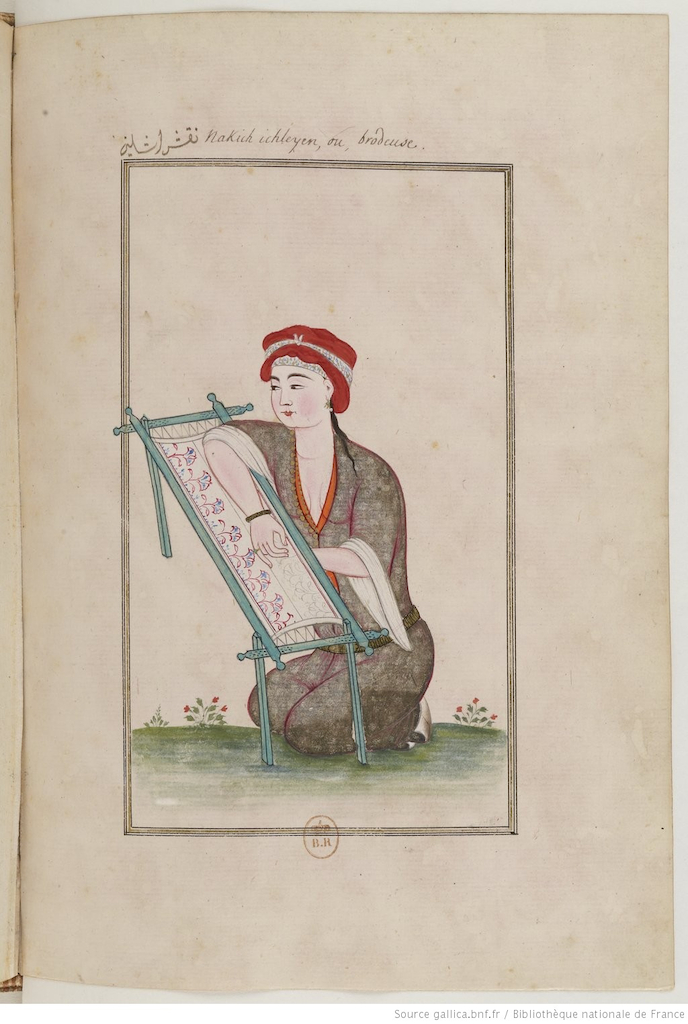 نقش اشلین Nakich ichleyen, ou, brodeuse.
B.R
Source gallica.bnf.fr / Bibliothèque nationale de France